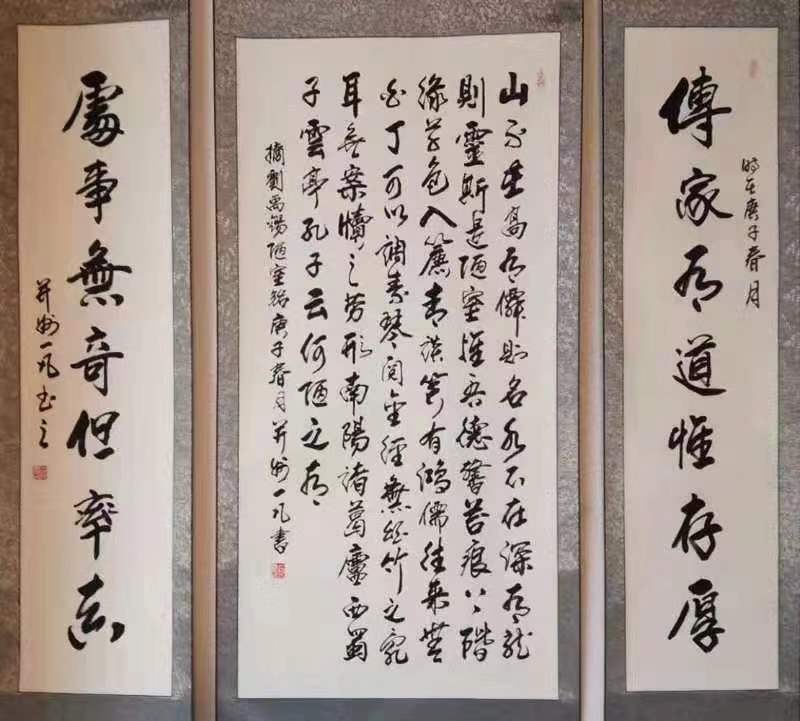 時在庚子春月
傳家有道惟存厚
山不在高有僊則名水不在深有龍
則靈斯是陋室惟吾德馨苔痕上階
綠草色入簾青談笑有鴻儒往來無
白丁可以調素琴閱金經無絲竹之亂
耳無案牘之勞形南陽諸葛廬西蜀
子雲亭孔子云何陋之有
摘劉禹錫陋室銘庚子春月并州一凡書
處事無奇但率真
并州一凡書之